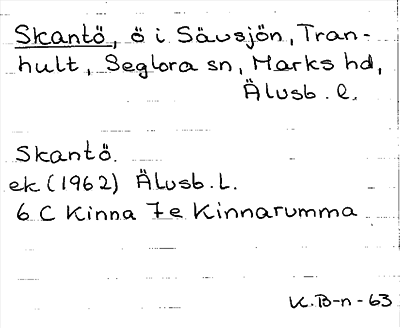 Skantö, ö i Sävsjön, Tran-
hult, Seglora sn, Marks hd,
Älvsb. l.
Skantö.
ek. (1962) Älvsb. L.
6 C Kinna 7e Kinnarumma
K. B-n - 63